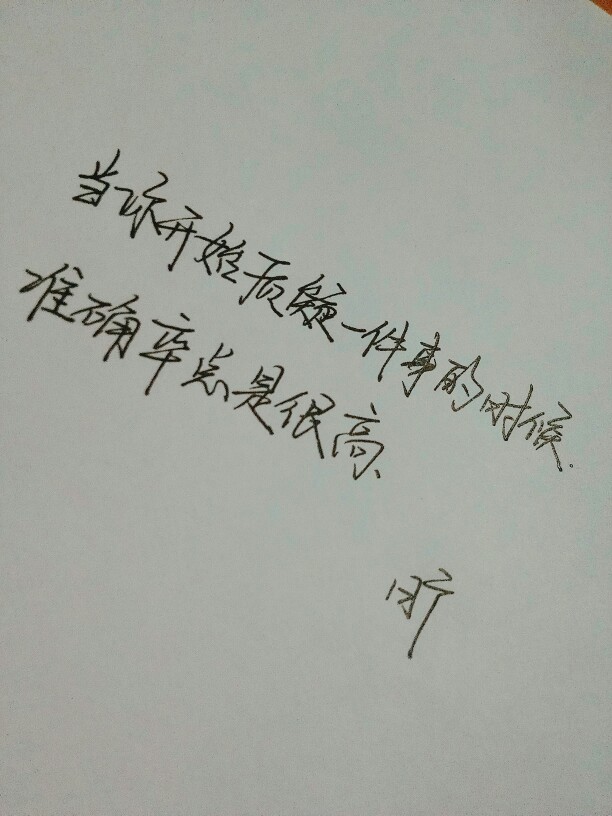 当你开始质疑一件事的时候.
准确率总是很高.